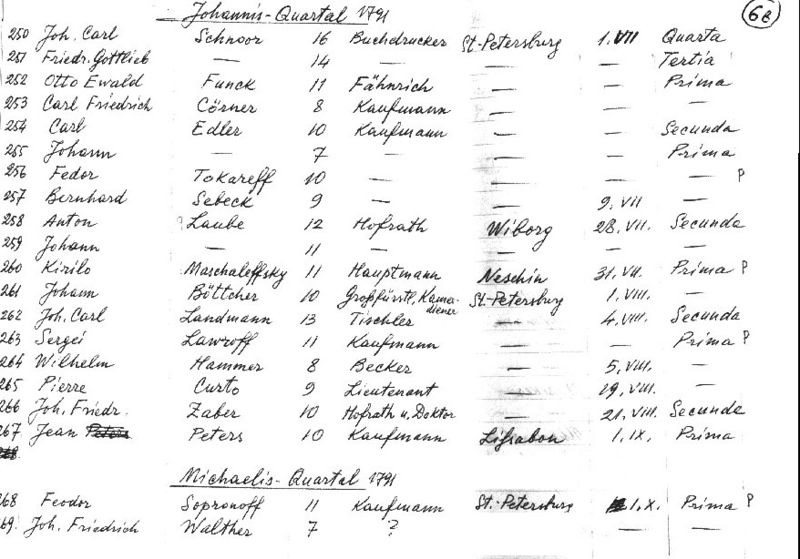 Johannis-Quartal 1791
6e
250 Joh. Carl Schnoor 16 Buchdrucker St-Petersburg 1. VII Quarta
251 Friedr. Gottlieb — 14 — — — Tertia
252 Otto Ewald Funck 11 Fähnrich — — Prima
253 Carl Friedrich Cörner 8 Kaufmann — — —
254 Carl Edler 10 Kaufmann — — Secunda
255 Johann — 7 — — — Prima
256 Fedor Tokareff 10 — — — — P
257 Bernhard Sebeck 9 — — 9. VII —
258 Anton ?Laube 12 Hofrath Wiborg 28. VII. Secunda
259 Johann — 11 — — — —
260 Kirilo Maschaleffsky 11 Hauptmann Neschin 31. VII. Prima P
261 Johann Böttcher 10 Großfürstl. Kama-diener St.-Petersburg 1. VIII. —
262 Joh. Carl Landmann 13 Tischler — 4. VIII. Secunda
263 Sergei Lawroff 11 Kaufmann — — Prima P
264 Wilhelm Hammer 8 Becker — 5. VIII. —
265 Pierre Curto 9 Lieutenant — 19. VIII. —
266 Joh. Friedr. Zaber 10 Hofrath u. Doktor — 21. VIII. Secunda
267 Jean Peters Peters 10 Kaufmann Lissabon 1. IX. Prima
268
Michaelis-Quartal 1791
268 Feodor Sopronoff 11 Kaufmann St.-Petersburg 1. X. Prima P
269. Joh. Friedrich Walther 7 ? — —